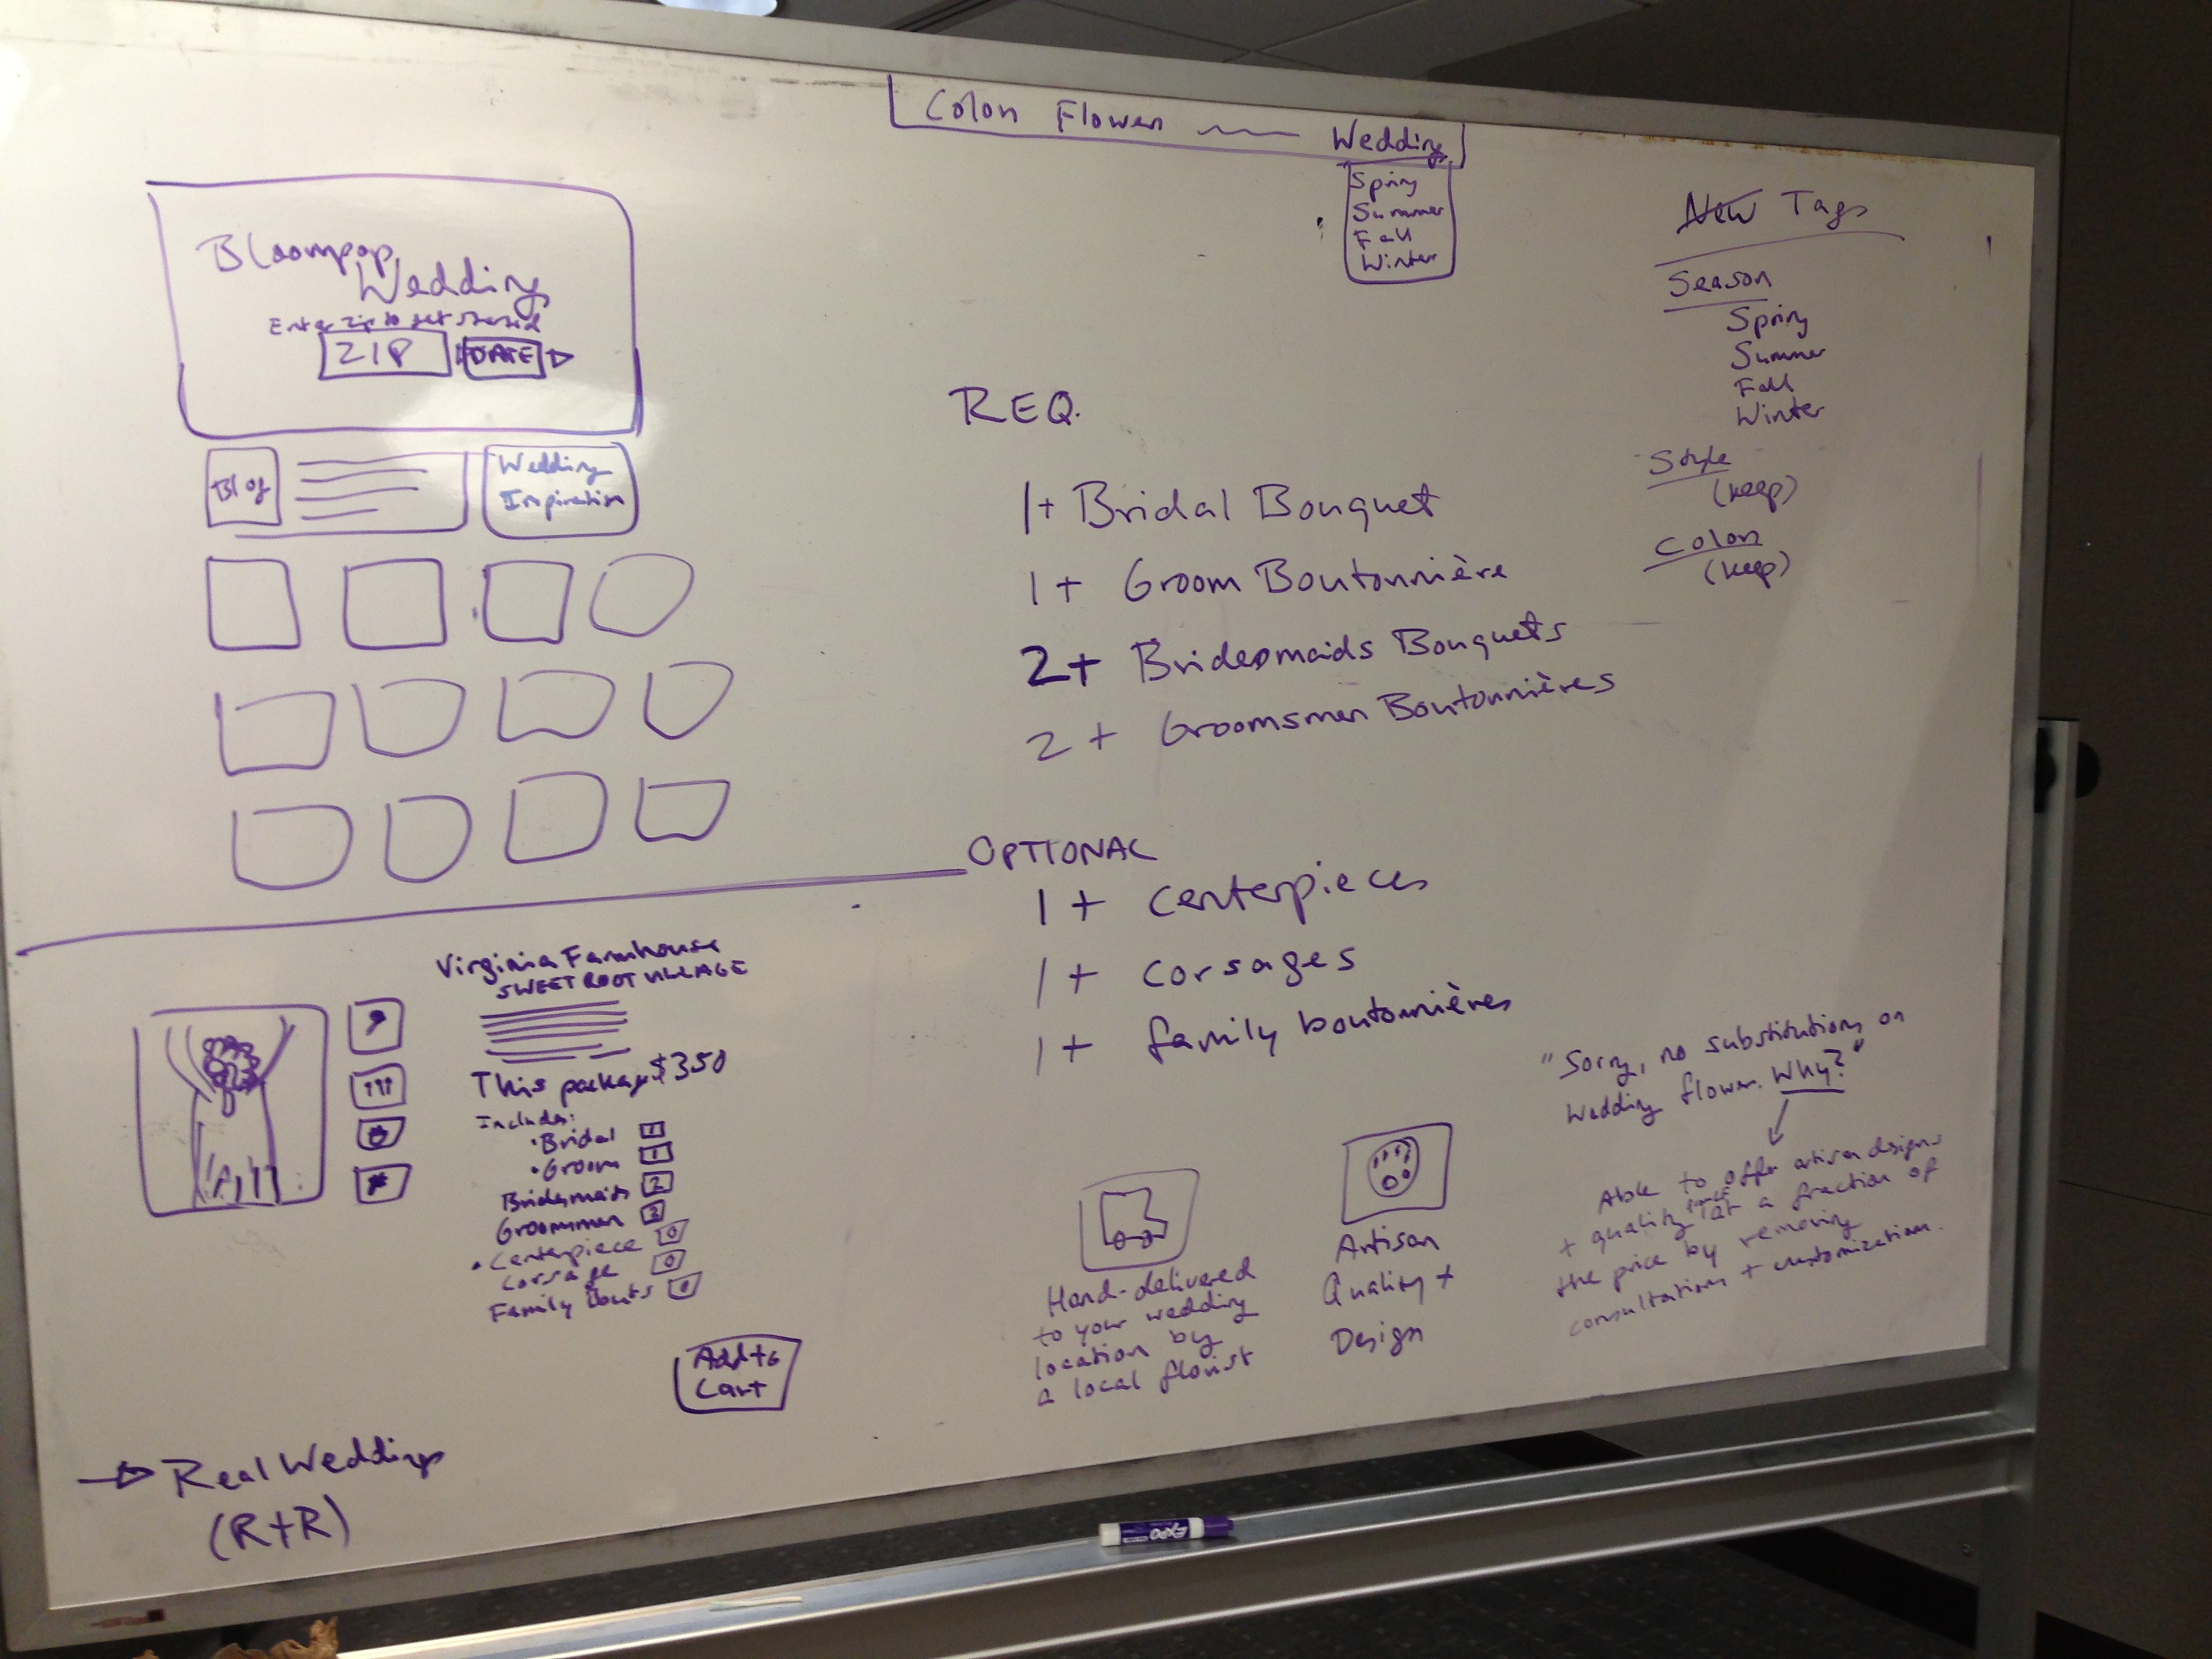 Color Flower Wedding
Spring
Summer
Fall
Winter
Bloompop
Wedding
Enter zip to get started
ZIP DATE
Blog
Wedding
Inspiration
REQ.
1+ Bridal Bouquet
1+ Groom Boutonnière
2+ Bridesmaids Bouquets
2+ Groomsmen Boutonnières
OPTIONAL
1+ centerpieces
1+ corsages
1+ family boutonnières
New Tags
Season
Spring
Summer
Fall
Winter
Style
(keep)
Color
(keep)
Virginia Farmhouse
SWEET ROOT VILLAGE
This package $350
Includes:
• Bridal 1
• Groom 1
Bridesmaids 2
Groomsmen 2
• Centerpiece 0
Corsage 0
Family bouts 0
Add to
Cart
→ Real Weddings
(R+R)
Hand-delivered
to your wedding
location by
a local florist
Artisan
Quality +
Design
"Sorry, no substitutions on
wedding flower. Why?"
Able to offer artisan designs
+ quality at a fraction of
the price by removing
consultations + customization.
EXPO